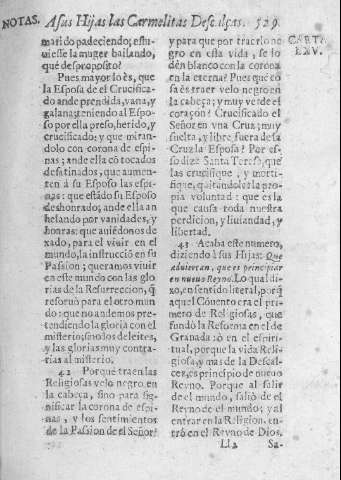 NOTAS. A sus Hijas las Carmelitas Descalças. 529.
CARTA
LXV.
marido padeciendo; estu-
uiesse la muger bailando,
què desproposito?
Pues mayor lo ès, que
la Esposa de el Crucifica-
do ande prendida, vana, y
galana teniendo al Espo-
so por ella preso, herido, y
crucificado: y que mirando
lo con corona de espi-
nas; ande ella cõ tocados
desatinados, que aumen-
ten à su Esposo las espi-
nas: que estãdo su Esposo
deshonrado, ande ella an
helando por vanidades, y
honras: que auiẽdonos de
xado, para el viuir en el
mundo, la instrucciõ en su
Passion; queramos viuir
en este mundo con las glo
rias de la Resurreccion, q̃
reseruò para el otro mun
do: que no andemos pre-
tendiendo la gloria con el
misterio, sino los deleites,
y las glorias muy contra-
rias al misterio.
42 Porquè traen las
Religiosas velo negro en
la cabeça, sino para sig-
nificar la corona de espi-
nas, y los sentimientos
de la Passion de el Señor?
y para que por traer lo ne
gro en esta vida, se lo
dèn blanco con la corona
en la eterna? Pues què co
sa ès traer velo negro en
la cabeça; y muy verde el
coraçon? Crucificado el
Señor en vna Cruz; muy
suelta, y libre, fuera de sa
Cruz la Esposa? Por es-
so dize Santa Teresa, que
las crucifique, y morti-
fique, quitandoles la pro-
pia voluntad: que es la
que causa toda nuestra
perdicion, y liuiandad, y
libertad.
43 Acaba este numero,
diziendo à sus Hijas: Que
aduiertan, que es principiar
en nueuo Reyno. Lo qual di-
xo, en sentido literal, porq̃
aquel Cõuento era el pri-
mero de Religiosas, que
fundò la Reforma en el de
Granada: ò en el espiri-
tual, porque la vida Reli-
giosa, y mas de la Descal-
cès, es principio de nueuo
Reyno. Porque al salir
de el mundo, saliò de el
Reyno de el mundo; y al
entrar en la Religion, en-
trò en el Reyno de Dios.
Ll 3 Sa-